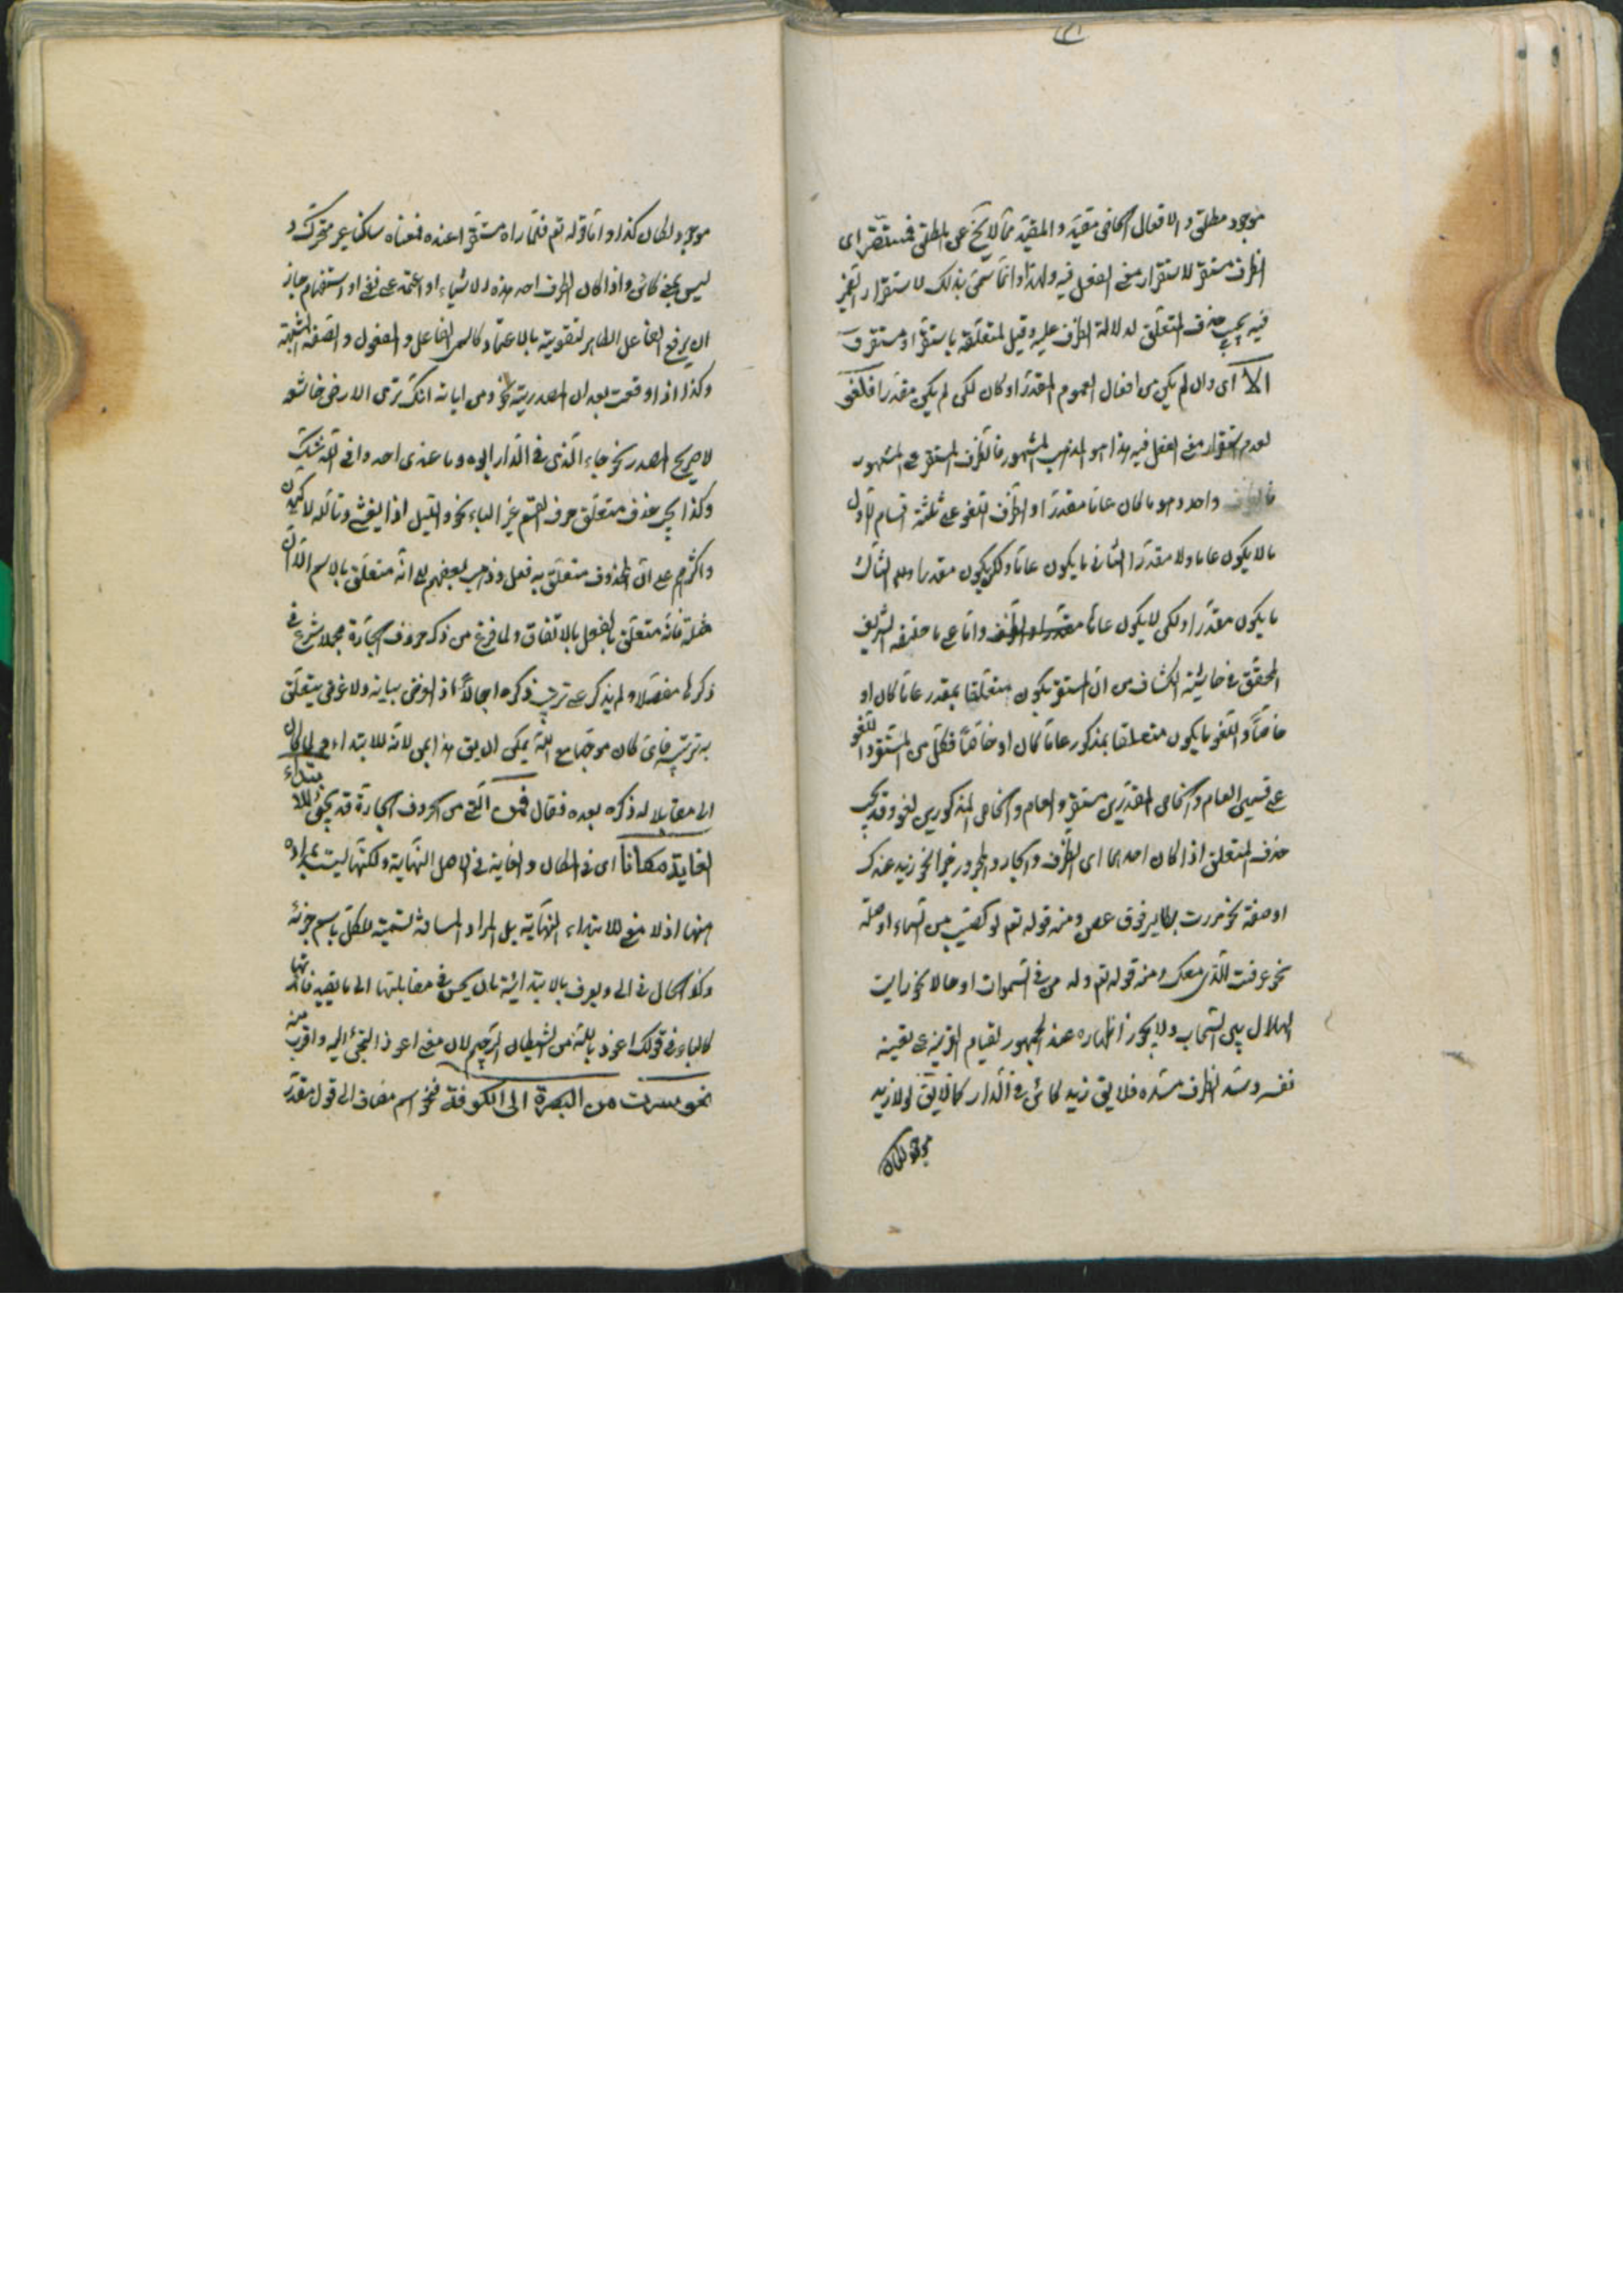 موجود مطلق والافعال الخاص مقيد والمقيد مما لا يخ عن المطلق فمستقر اى
الظرف مستقر لاستقرار معنى الفعل فيه ولهذا وانما سمى بذلك لاستقرار الضمير
فيه يجب حذف المتعلق لدلالة الظرف عليه وقيل لمتعلقه باستقر او مستقر
والا اى وان لم يكن من افعال العموم المقدر او كان لكن لم يكن مقدرا فلغو
لعدم استقرار معنى الفعل فيه هذا هو المذهب المشهور فالظرف المستقر على المشهور
واحد وهو ما كان عاما مقدرا والظرف اللغو على ثلثة اقسام الاول
ما لا يكون عاما ولا مقدرا الثانى ما يكون عاما ولكن يكون مقدرا الثالث
ما يكون مقدرا ولكن لا يكون عاما واما على ما حققه الشريف
المحقق فى حاشية الكشاف من ان المستقر يكون متعلقا بمقدر عاما كان او
خاصا واللغو ما يكون متعلقا بمذكور عاما كان او خاصا فكل من المستقر واللغو
على قسمين العام والخاص المقدرين مستقر والعام والخاص المذكورين لغو وقد يجب
حذف المتعلق اذا كان احدهما اى الظرف والجار والمجرور خبرا نحو زيد عندك
او صفة نحو مررت بطاير فوق غصن ومنه قوله تعم او كصيب من السماء او صلة
نحو عرفت الذى معك ومنه قوله تعم وله من فى السموات او حالا نحو رايت
الهلال بين السحاب ولا يجوز اظهاره عند الجمهور لقيام القرينة على تعيينه
نفسه وسد الظرف مسده فلا يق زيد كائن فى الدار كما لا يق لولا زيد
موجود لكان
موجود لكان كذا واما قوله تعم فلما راه مستقرا عنده فمعناه ساكنا غير متحرك و
ليس بمعنى كائن واذا كان الظرف احد هذه الاشياء او اعتمد على نفى او استفهام جاز
ان يرفع الفاعل الظاهر لتقويته بالاعتماد كاسمى الفاعل والمفعول والصفة المشبهة
وكذا اذا وقعت بعد ان المصدرية نحو ومن اياته انك ترى الارض خاشعة
لا صريح المصدر نحو جاء الذى فى الدار ابوه وما عندى احد وافى الله شك
وكذا يجب حذف متعلق حرف القسم غير الباء نحو والليل اذا يغشى وتالله لاكيدن
واكثرهم على ان المحذوف متعلق به فعل وذهب بعضهم الى انه متعلق بالاسم الا ان
صلة فانه متعلق بالفعل بالاتفاق ولما فرغ من ذكر حروف الجارة مجملا شرع فى
ذكرها مفصلا ولم يذكر على ترتيب ذكره اجمالا اذ الغرض بيانه ولا غرض يتعلق
به ترتيبه فاى كان موجبا مع انه يمكن ان يق هذا بمن لانه للابتداء ولما كان
الى مقابلا له ذكره بعده فقال فمن التى من الحروف الجارة قد يجئ للابتداء
الغاية مكانا اى فى المكان والغاية فى الاصل النهاية ولكنها ليست بمرادة
منها اذ لا معنى للابتداء النهاية بل المراد المسافة تسمية للكل باسم جزئه
وكذا الحال فى الى ويعرف بالابتدائية بان يحسن فى مقابلتها الى ما يفيد فائدتها
كالباء فى قولك اعوذ بالله من الشيطان الرجيم لان معنى اعوذ التجئ اليه واقرب منه
نحو سرت من البصرة الى الكوفة فنحو اسم مضاف الى قول مقدر